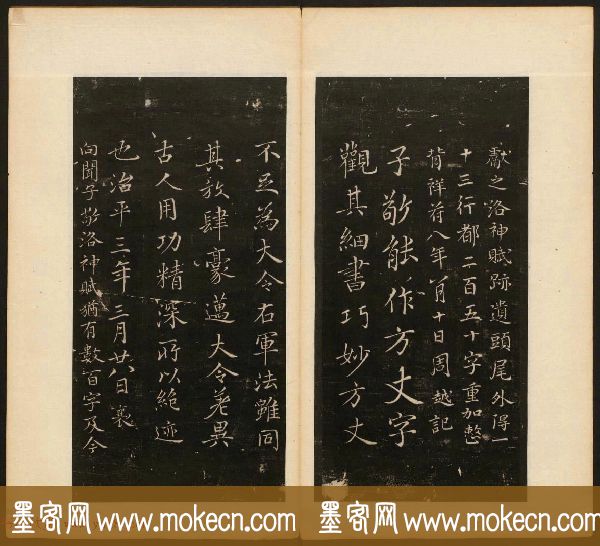 獻之洛神賦跡遺頭尾外得一
十三行都二百五十字重加整
背祥符八年八月十日周越記
子敬能作方丈字
觀其細書巧妙方丈
不足為大令右軍法雖同
其放肆豪邁大令差異
古人用功精深所以絕迹
也治平三年三月廿八日襄
向聞子敬洛神賦猶有數百字及今
墨客网 www.mokecn.com 墨客网 www.mokecn.com